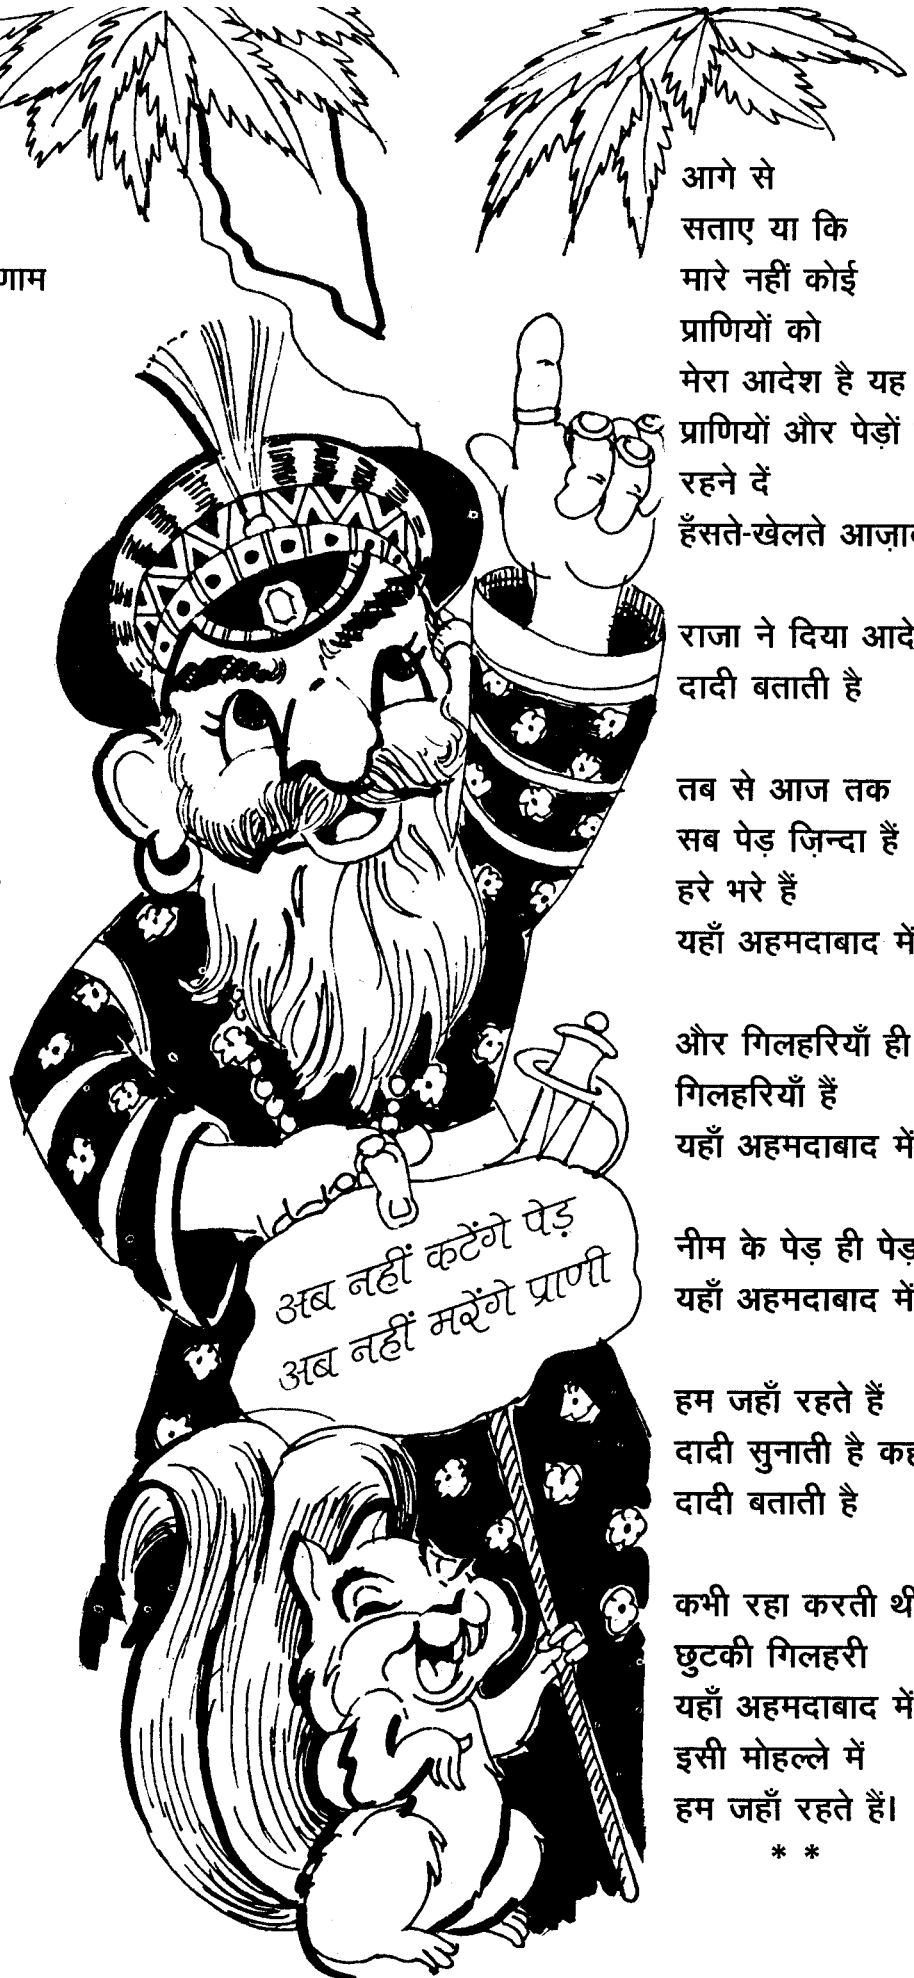 णाम
आगे से
सताए या कि
मारे नहीं कोई
प्राणियों को
मेरा आदेश है यह
प्राणियों और पेड़ों
रहने दें
हँसते-खेलते
राजा ने दिया
दादी बताती है
तब से आज तक
सब पेड़ ज़िन्दा हैं
हरे भरे हैं
यहाँ अहमदाबाद में
और गिलहरियाँ ही
गिलहरियाँ हैं
यहाँ अहमदाबाद में
नीम के पेड़ ही पेड़
यहाँ अहमदाबाद में
हम जहाँ रहते हैं
दादी सुनाती है
दादी बताती है
कभी रहा करती थी
छुटकी गिलहरी
यहाँ अहमदाबाद में
इसी मोहल्ले में
हम जहाँ रहते हैं।
* *
अब नहीं कटेंगे पेड़
अब नहीं मरेंगे प्राणी